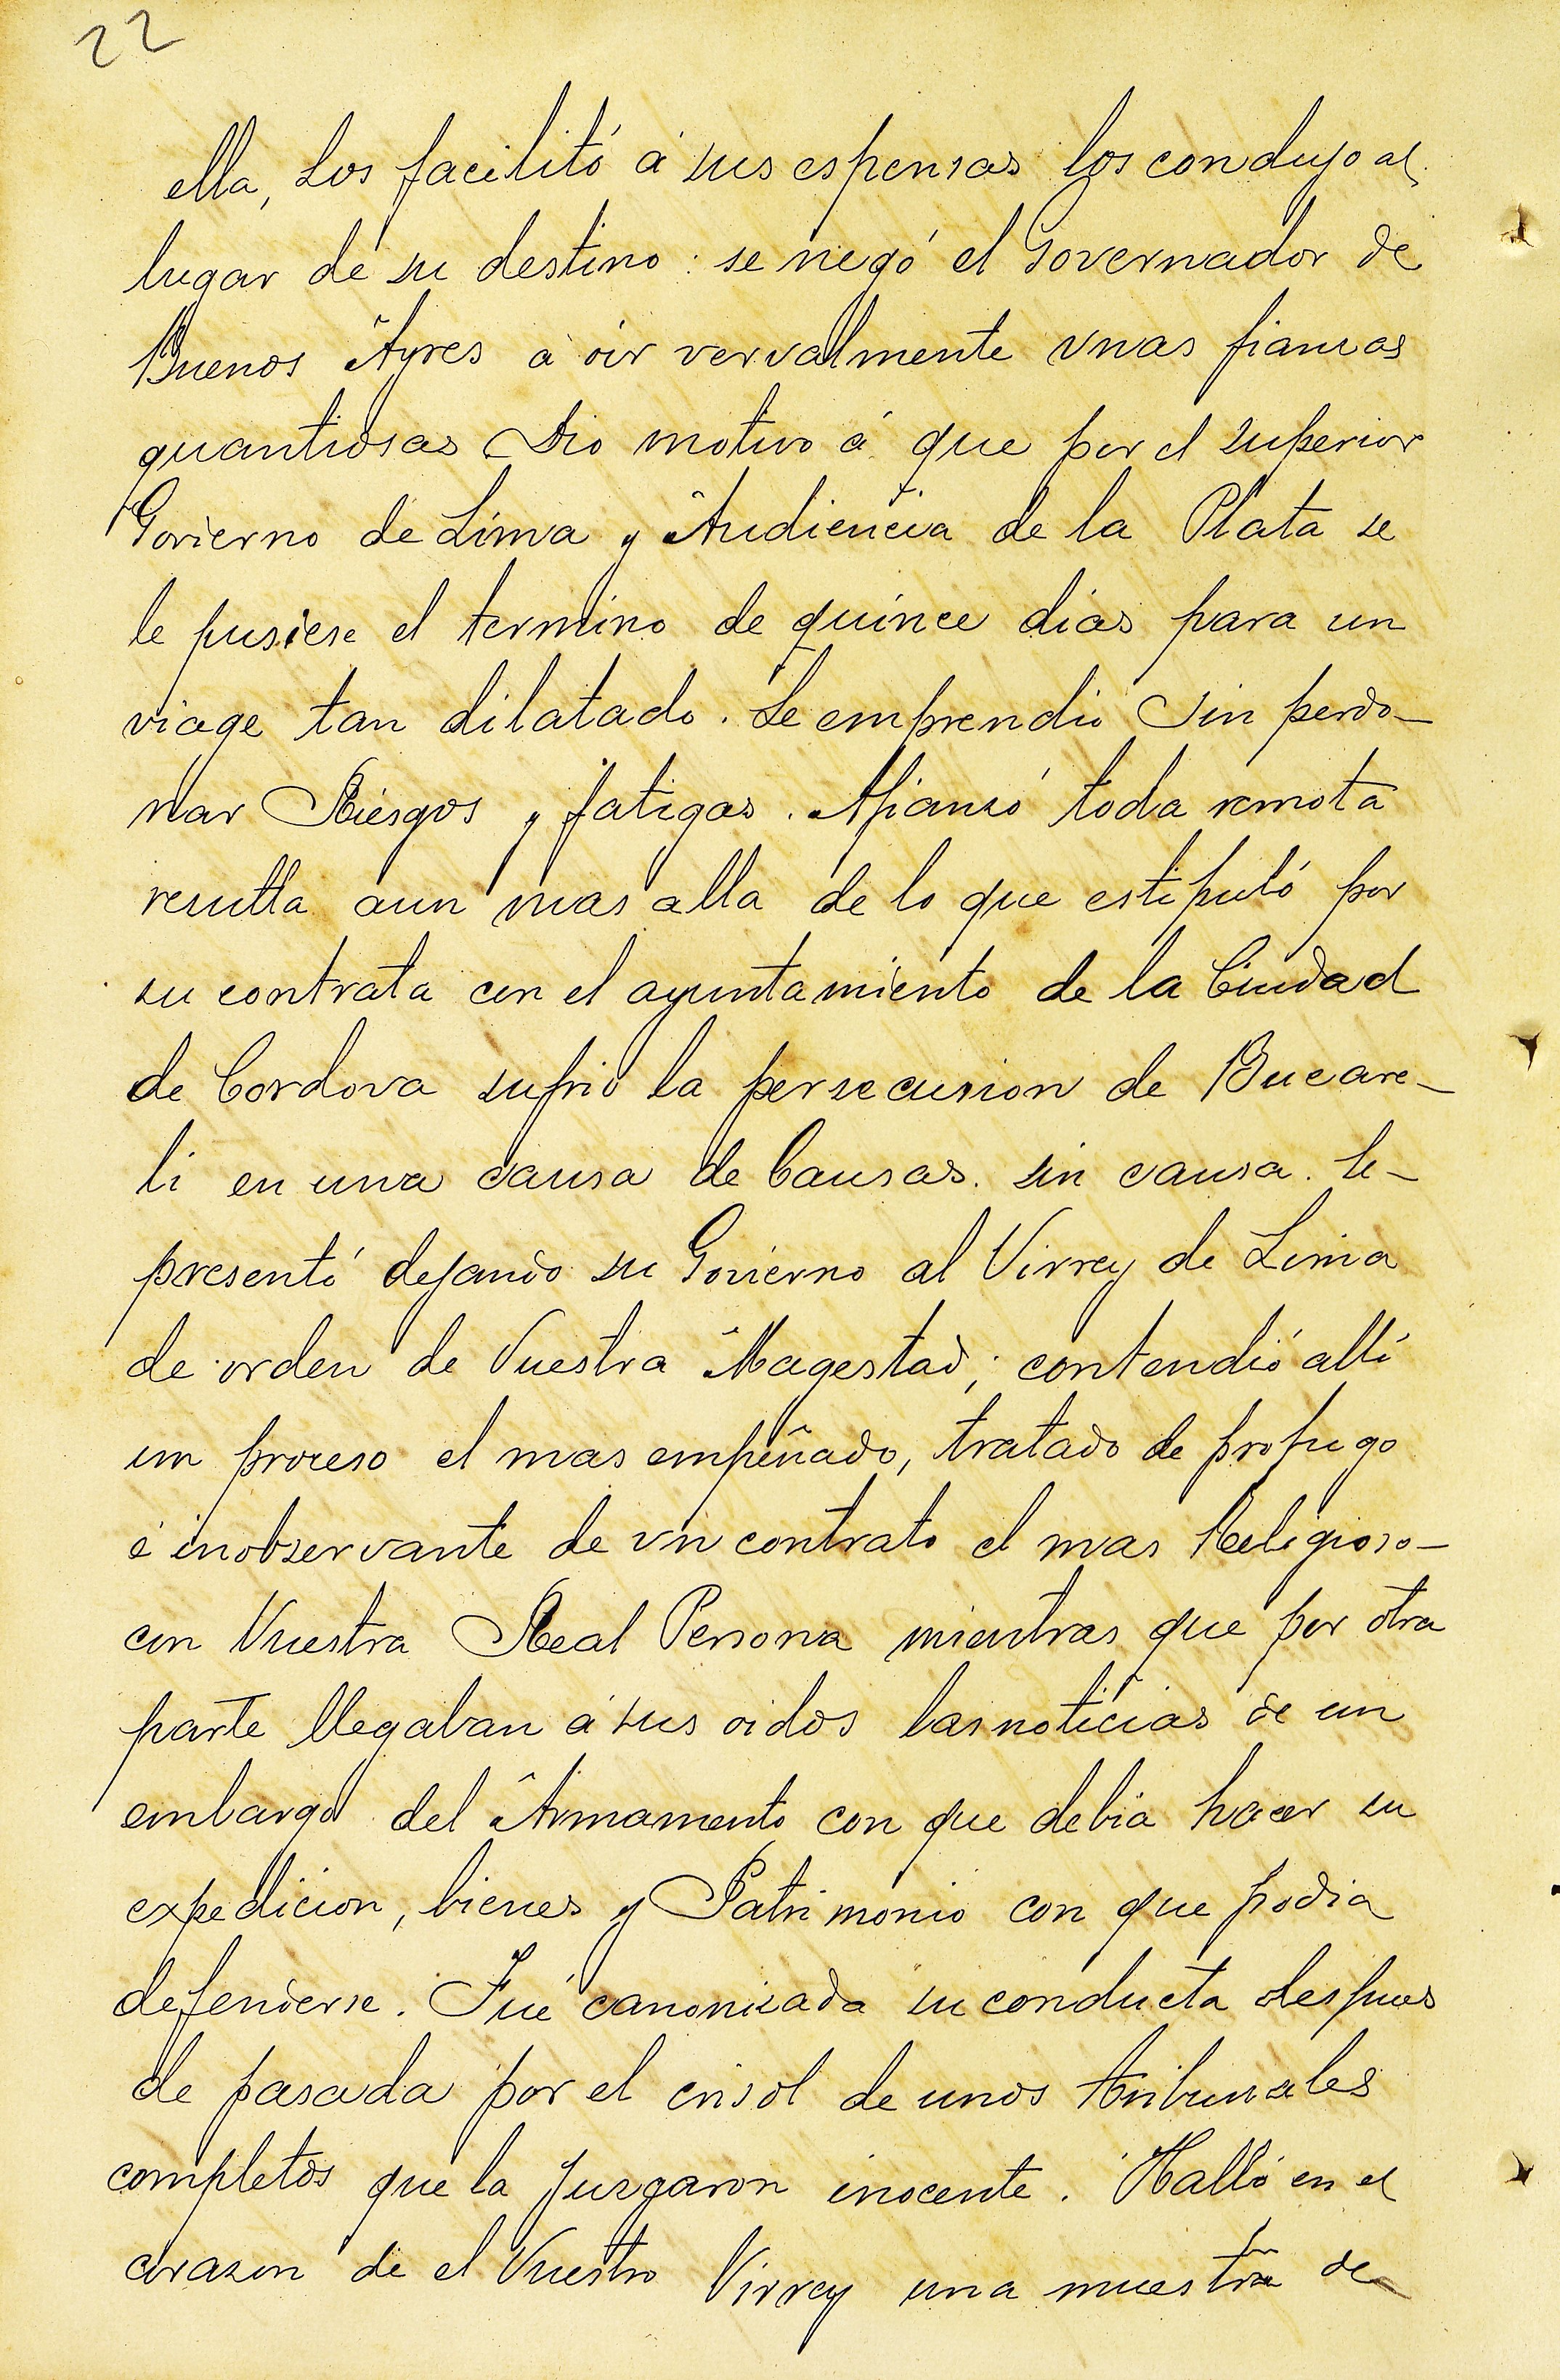 22
ella, Los facilitó á sus espensas los condujo al
lugar de su destino: se negó el Governador de
Buenos Ayres a oir vervalmente vnas fianzas
quantiosas Dio motivo á que por el superior
Govierno de Lima y Audiencia de la Plata se
le pusiese el termino de quince dias para un
viage tan dilatado. Le emprendio sin perdo-
nar Riesgos y fatigas. Afianzó toda remota
resulta aun mas alla de lo que estipuló por
su contrata con el ayuntamiento de la Ciudad
de Cordova sufrio la persecusion de Bucare-
li en una causa de Causas. sin causa. Se-
presentó dejando su Govierno al Virrey de Lima
de orden de Vuestra Magestad; contendió allí
un proceso el mas empeñado, tratado de profugo
é inobservante de vn contrato el mas Religioso-
con Vuestra Real Persona mientras que por otra
parte llegaban á sus oidos las noticias de un
embargo del Armamento con que debia hacer su
expedicion, bienes y Patrimonio con que podia
defenderse. Fué canonizada su conducta despues
de pasada por el crisol de unos tribunales
completos que la juzgaron inocente. Halló en el
corazon de el Vuestro Virrey una muestra de